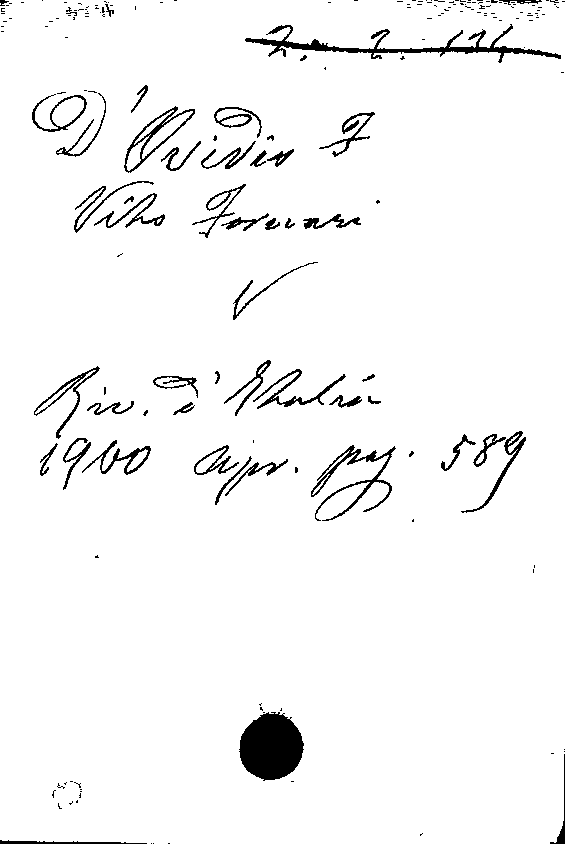 2. 2. 134
D'Ovidio F
Vito Fornari
Riv. d'Italia
1900 apr. pag. 589